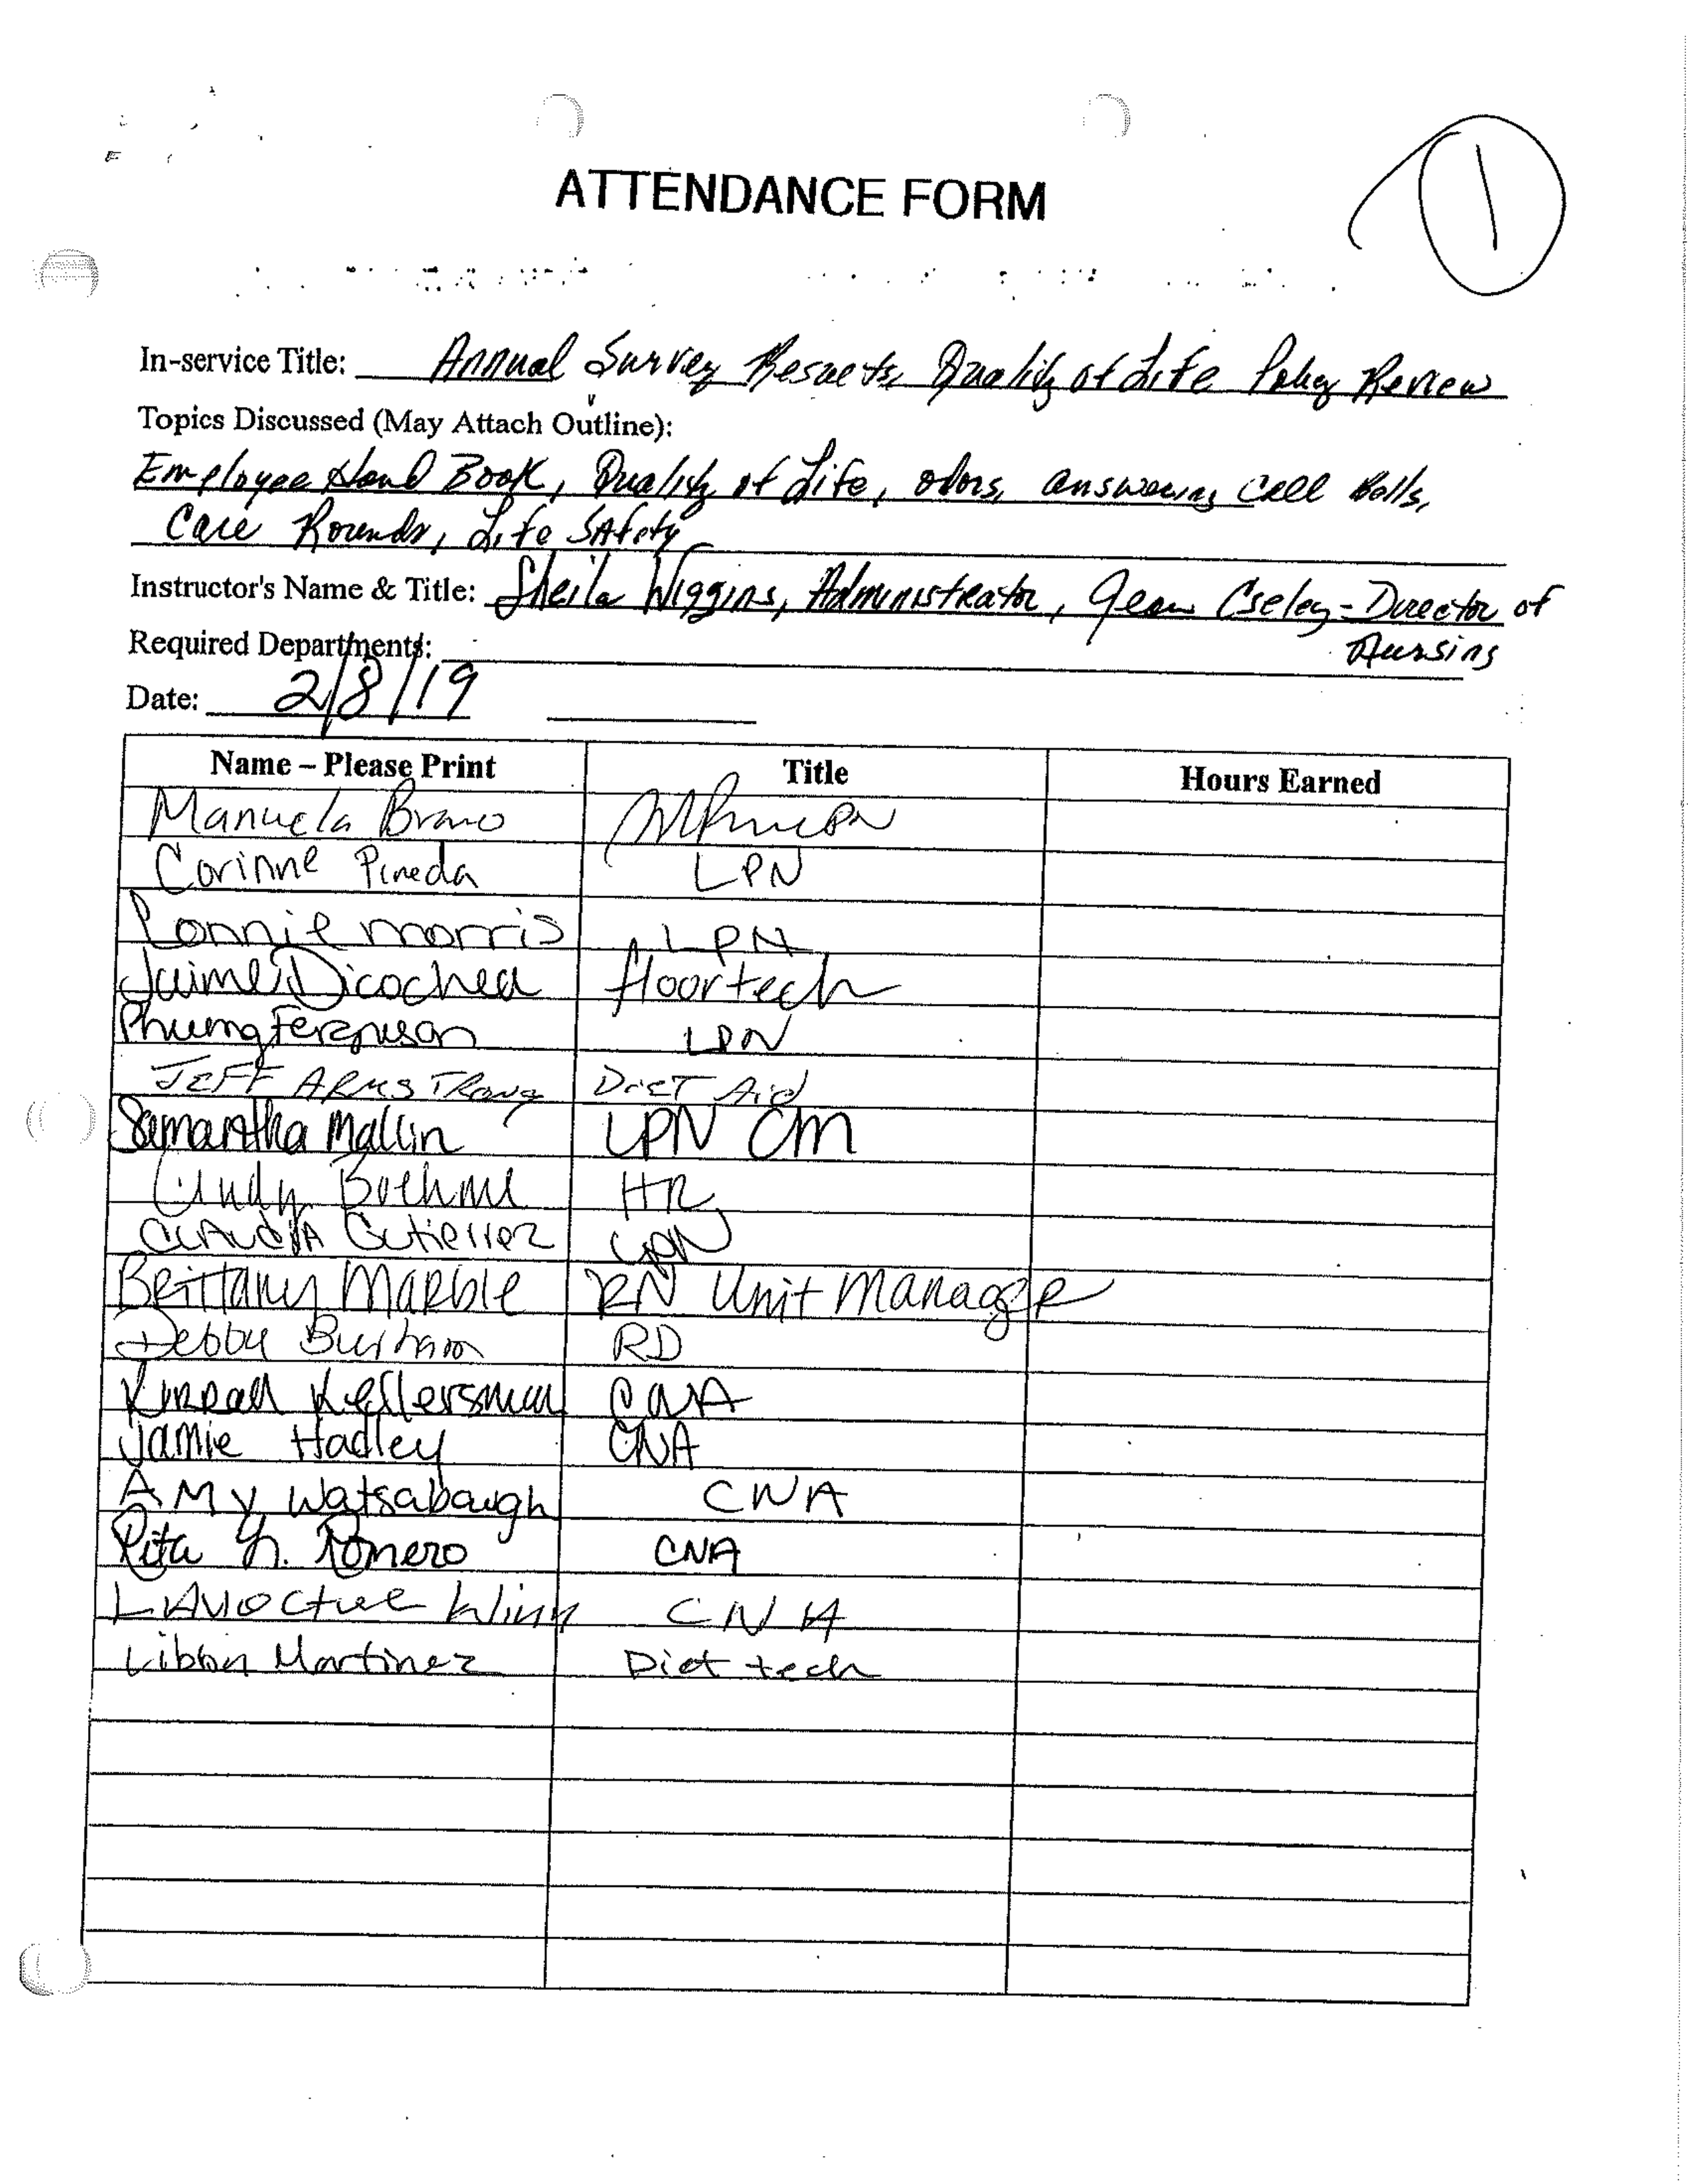 1
ATTENDANCE FORM
In-service Title: Annual Survey Results, Quality of Life Policy Review
Topics Discussed (May Attach Outline):
Employee Hand Book, Quality of Life, odors, answering Call Bells,
Care Rounds, Life Safety
Instructor's Name & Title: Sheila Wiggins, Administrator, Jean Cseley - Director of
Nursing
Required Departments:
Date: 2/8/19
Name – Please Print Title Hours Earned
Manuela Bravo
Corinne Pineda LPN
Ronnie Morris LPN
Jaime Dicochea floor tech
Phung Ferguson LPN
JEFF ARMSTRONG DIET Aid
Samantha Mallin LPN CM
Cindy Boehme HR
CLAUDIA Gutierrez LPN
Brittany Marble RN Unit Manager
Debby Burnham RD
Kellersman CNA
Jamie Hadley CNA
AMY Watsabaugh CNA
Rita Romero CNA
Winn CNA
Libby Martinez Diet tech